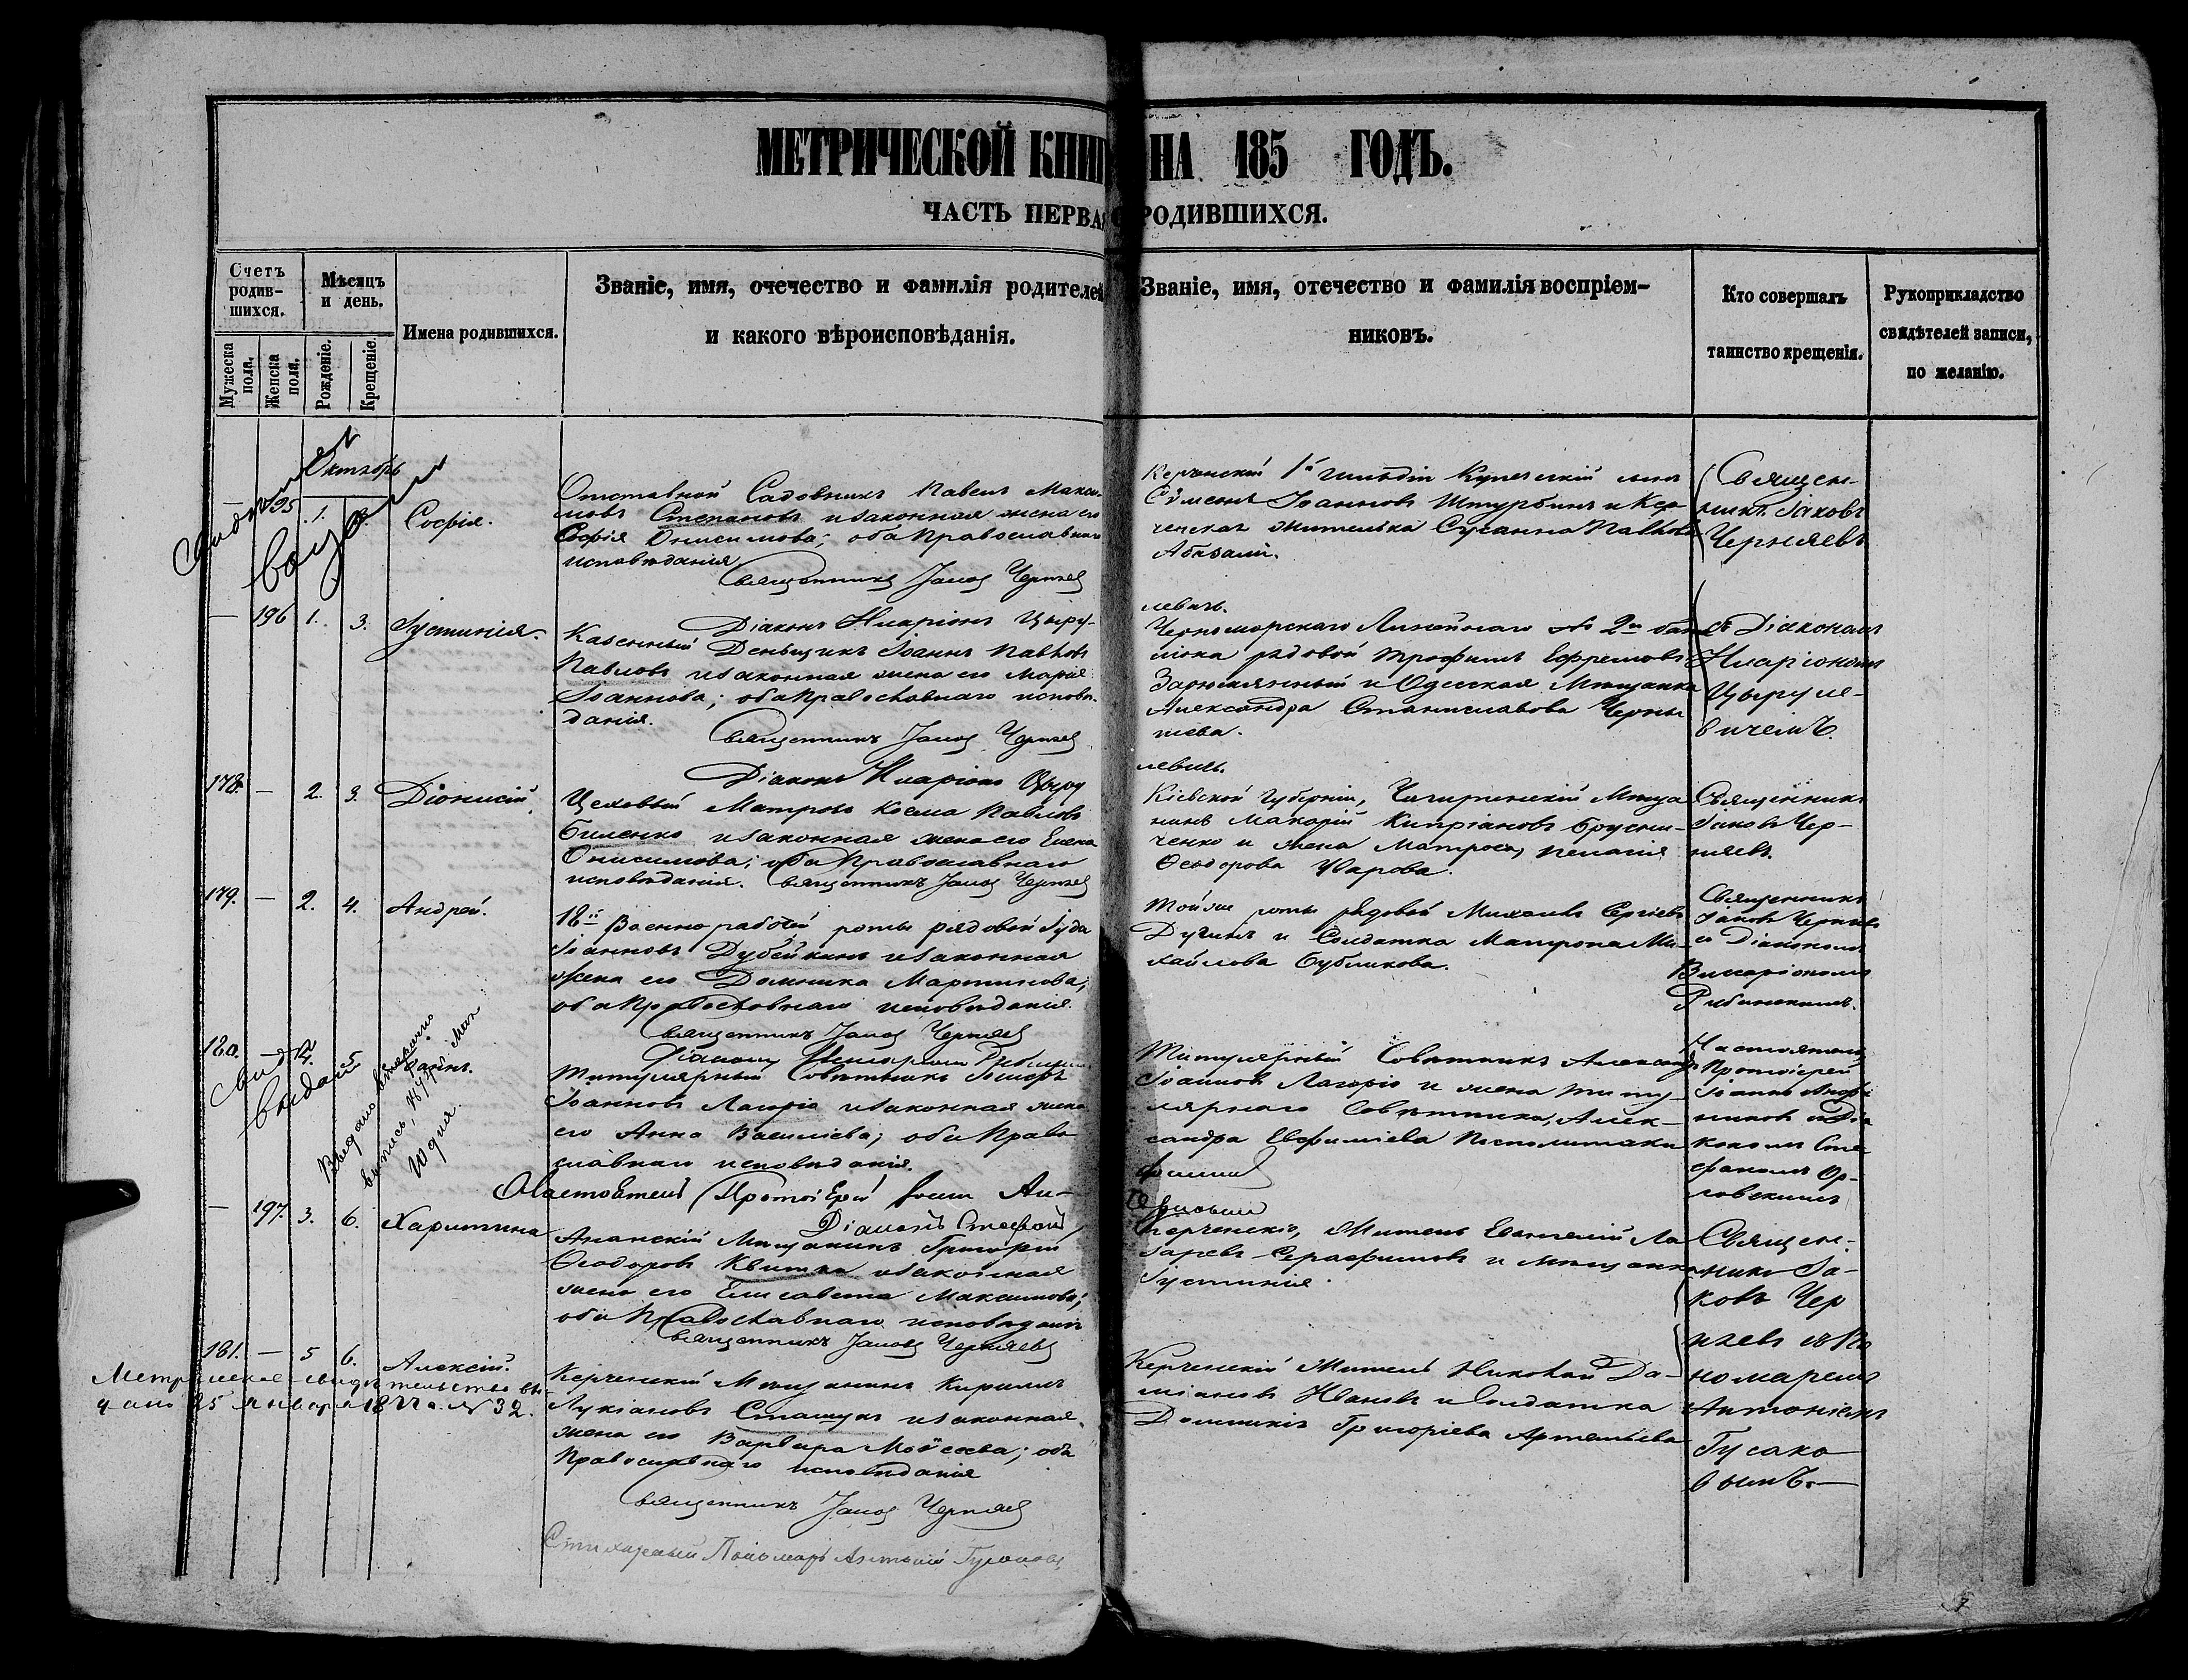 МЕТРИЧЕСКОЙ КНИГ НА 185 ГОДЪ.
ЧАСТЬ ПЕРВАЯ О РОДИВШИХСЯ.
Счетъ родив-шихся.
Мужеска пола.
Женска пола.
Мѣсяцъ и день.
Рожденіе.
Крещеніе.
Имена родившихся.
Званіе, имя, очечество и фамилія родителей
и какого вѣроисповѣданія.
Званіе, имя, отечество и фамилія воспріем-
никовъ.
Кто совершалъ
таинство крещенія.
Рукоприкладство
свидѣтелей записи,
по желанію.
Октябрь
— 195 1. Софія.
Отставной Садовникъ Павелъ Макси-
мовъ Степановъ и законная жена его
Софія Онисимова; оба Православнаго
исповѣданія
Священникъ Іаковъ Черняев
1й гильдіи Купеческій сынъ
Сѵмеонъ Іоанновъ Штурбинъ и Кер-
ченская жителька Сусанна
Священ-
никъ Іаковъ
Черняевъ
— 196 1. 3. Іустинія.
Діаконъ Иларіонъ Цыру-
левичъ.
Казенный Деньщикъ Іоаннъ Павловъ
Павловъ и законная жена его Марія
Іоаннова; оба Православнаго исповѣ-
данія.
Священникъ Іаковъ Черняев
Черноморскаго Линейнаго № 2го бата
ліона рядовой Трофимъ Ефремовъ
и Одесская Мѣщанка
Александра Станиславова Черны
шева.
съ Діакономъ
Иларіономъ
Цыруле-
вичемъ.
178. — 2. 3. Діонисій
Діаконъ Иларіонъ Цыру
левичъ.
Цеховый Матросъ Косма Павловъ
Биленко и законная жена его Елена
Онисимова; оба Православнаго
исповѣданія. Священникъ Іаковъ Черняев
Кіевской Губерніи, Чигиринскій Мѣща
нинъ Макарій Кипріановъ Брусни-
ченко и жена Матроса, Пелагія
Ѳеодорова Уварова.
Священникъ
Іаковъ Чер-
няевъ.
179. — 2. 4. Андрей.
18й Военнорабочей роты рядовой Іуда
Іоанновъ Дубейкинъ и законная
жена его Домника Мартинова;
оба Православнаго исповѣданія.
Священникъ Іаковъ Черняев
Тойже роты рядовой Михаилъ Сергіевъ
Дугинъ и Солдатка Матрона Ми-
хайлова Бубликова.
Священникъ
Іаковъ Черняевъ
съ Діакономъ
Виссаріономъ
180. — 5.
Титулярный Совѣтникъ Іосифъ
Іоанновъ Лагоріо и законная жена
его Анна Василіева; оба Право
славнаго исповѣданія.
Настоятель Протоіерей Іоаннъ Ан-
Титулярный Совѣтникъ Александръ
Іоанновъ Лагоріо и жена Титу-
лярнаго Совѣтника, Алек-
сандра Евфиміева
Настоятель
Протоіерей
Іоаннъ
и Діа
кономъ Сте
фаномъ Ор-
ловскимъ
— 197. 3. 6. Харитина
Діаконъ Стефанъ
Анапскій Мѣщанинъ Григорій
Ѳеодоровъ Квитка и законная
жена его Елисавета Максимова;
оба Православнаго исповѣданія
Священникъ Іаковъ Черняевъ
Керченскіе, Житель Евангелій Ла
заревъ Серафимовъ и мѣщанка
Іустинія.
Священ-
никъ Іа-
ковъ Чер
няевъ съ По
номаремъ
Антоніемъ
Гусако
вымъ.—
181. — 5 6. Алексій.
Метрическое свидѣтельство вы-
дано 25 января № 32.
Керченскій Мѣщанинъ Кириллъ
Лукіановъ Сташукъ и законная
жена его Варвара Моѵсеева; оба
Православнаго исповѣданія
Священникъ Іаковъ Черняев
Стихарный Пономарь Антоній Гусаковъ
Керченскій Житель Николай Да-
міановъ Ивановъ и Солдатка
Домникія Григоріева Артемьева